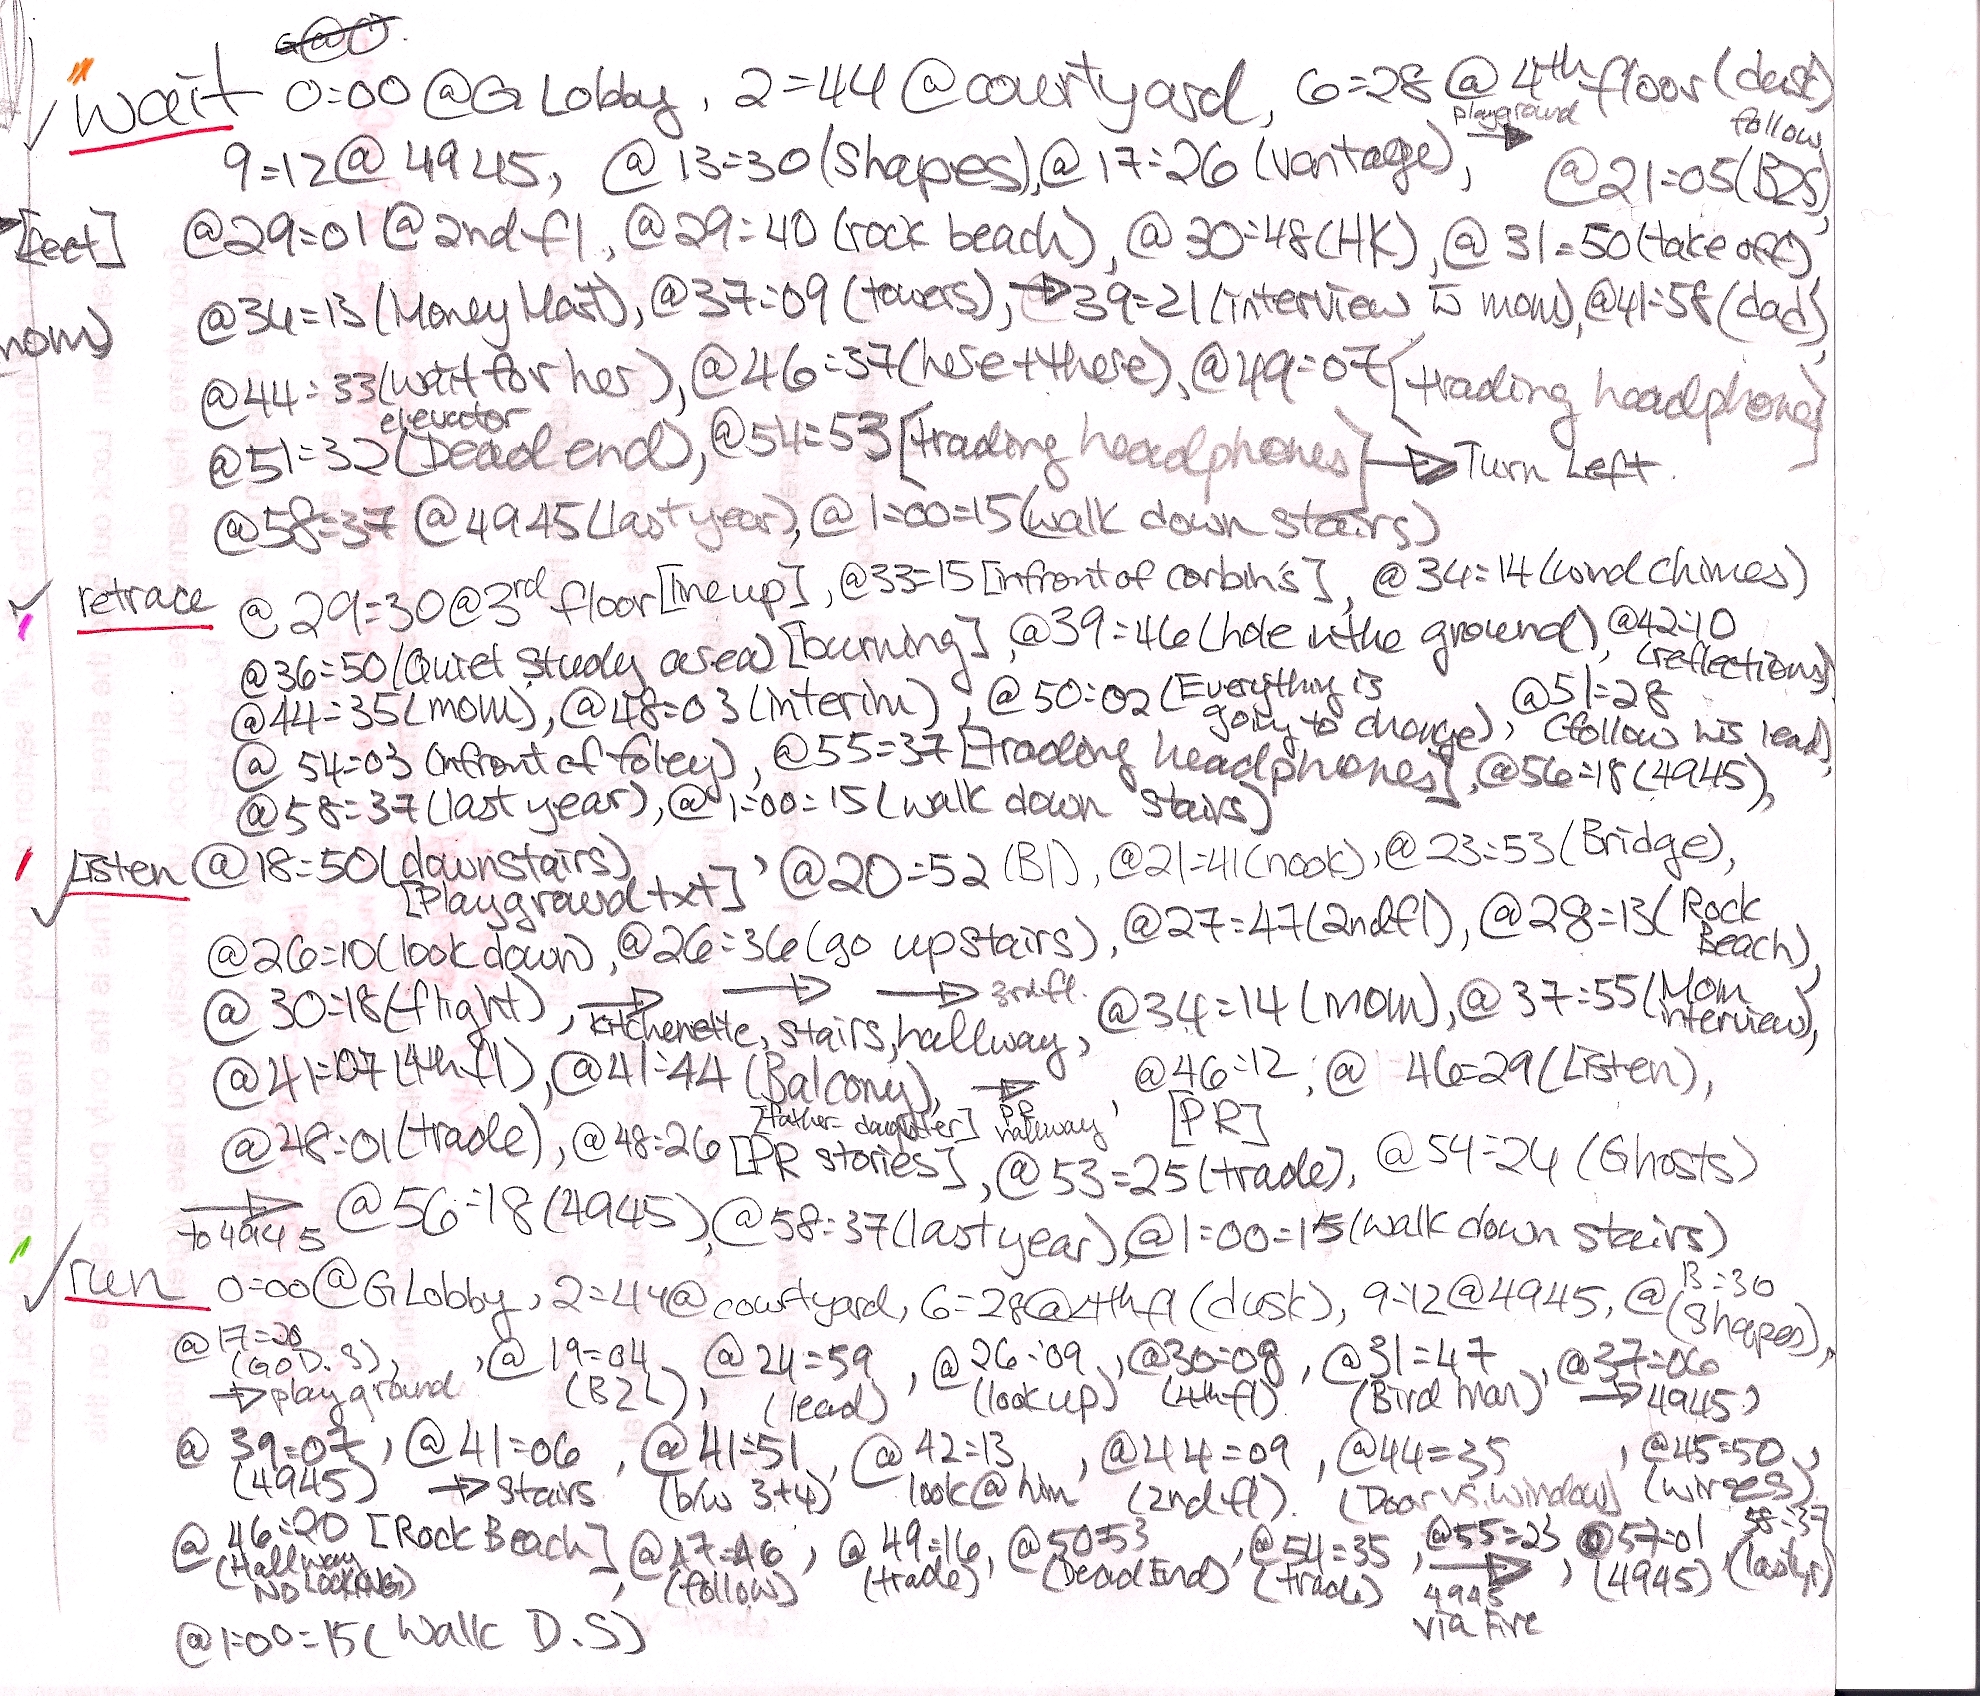 wait 0:00 @G Lobby, 2=44 @courtyard, 6=28 @ 4th floor (dust)
playground follow
9=12@ 4945, @ 13=30 (Shapes), @ 17=26 (vantage), → @21=05 (B2S),
[feet] @29=01 @ 2nd fl, @29=40 (rock beach), @ 30=48 (HK), @ 31=50 (take off),
mom) @34=13 (Money Mart), @37=09 (towers), → 39=21 (interview w mom), @41=58 (dad),
@44=33 (wait for her), @46=37 (here + there), @49=07 [trading headphones]
elevator
@51=32 (Dead end), @54=53 [trading headphones] → Turn Left.
@58=37 @4945 (last year), @ 1=00=15 (walk down stairs)
retrace @ 29=30 @ 3rd floor [line up], @33=15 [infront of corbin's], @34=14 (wind chimes)
@36=50 (Quiet study area) [burning], @39=46 (hole in the ground), @42:10 (reflections)
@44=35 (mom), @48=03 (interim), @50:02 (Everything is going to change), @51=28 (follow his lead),
@ 54=03 (infront of foley), @55=37 [trading headphones], @56=18 (4945),
@58=37 (last year), @ 1=00=15 (walk down stairs)
Listen @18=50 (downstairs) [Playground txt], @20=52 (B1), @21=41 (nook), @23=53 (Bridge),
@26=10 (look down), @26=36 (go up stairs), @27=47 (2nd fl), @28=13 (Rock Beach),
@ 30=18 (flight), → kitchenette, → stairs, → hallway, 3rd fl. @34=14 (mom), @37=55 (Mom interview),
@41=07 (4th fl), @41=44 (Balcony), → , @46=12, @ 46=29 (Listen),
[father-daughter] hallway [PR]
@48=01 (trade), @48=26 [PR stories], @53=25 (trade), @54=24 (Ghosts)
→ to 4945 @56=18 (4945), @58=37 (last year), @1=00=15 (walk down stairs)
run 0=00@G Lobby, 2=44@courtyard, 6=28@4th fl (dusk), 9:12@4945, @ 13=30 (Shapes),
@17=20 (GO D.S), → playground, @ 19=04 (B2L), @ 24=59 (lead), @ 26=09 (look up), @30=08 (4th fl), @31=47 (Bird man), @37=06 → 4945,
@ 39=07 (4945), @41=06 → stairs, @41=51 (b/w 3+4), @ 42=13 look@him, @44=09 (2nd fl), @44=35 (Door vs. window), @45=50 (wires),
@ 46=20 (Hallway NO LOOKING) [Rock Beach], @47=46 (follow), @ 49=16 (trade), @50=53 (Dead End), @54=35 (trade), @55=23 → 4945 via Fire, @57=01 (4945) 58=37 (last yr)
@1=00=15 (Walk D.S)